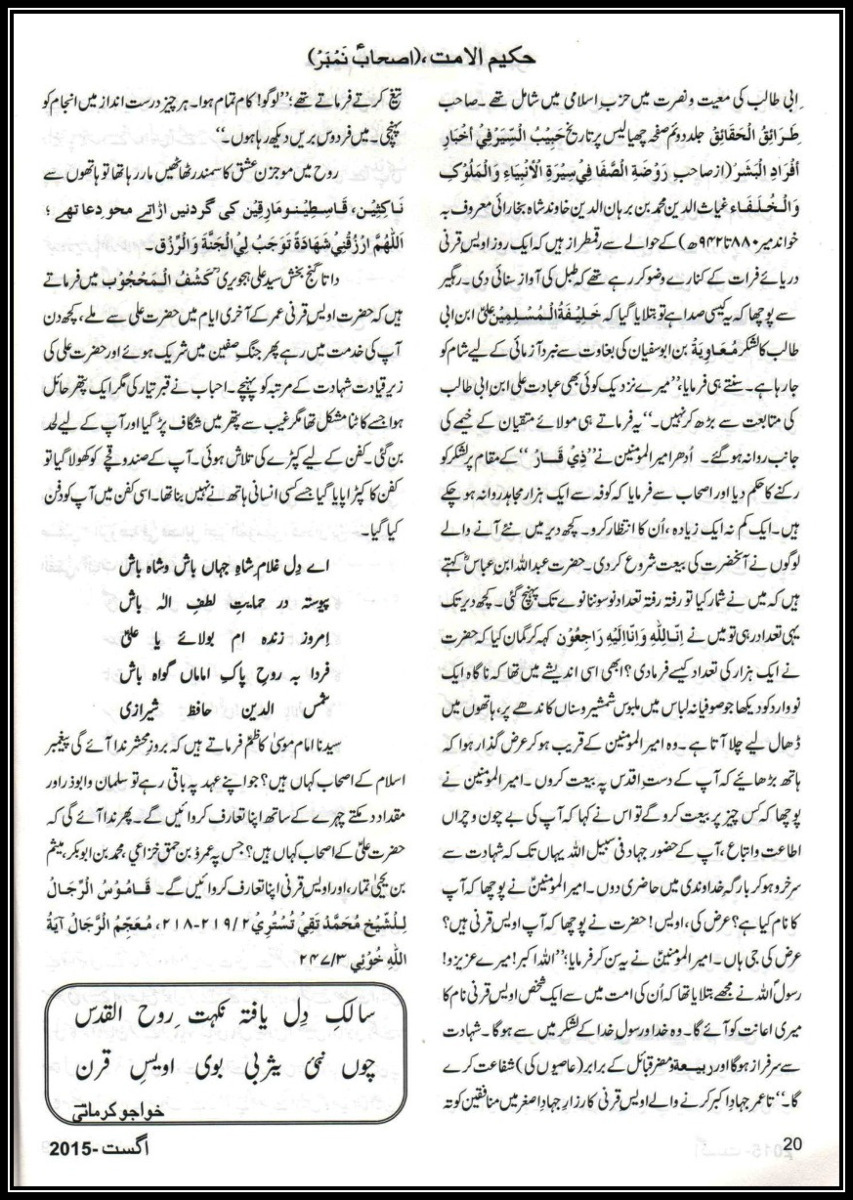 حکیم الامت،(اصحابؑ نَمْبَرُ)
ابی طالب کی معیت و نصرت میں حزب اسلامی میں شامل تھے۔صاحب
طرَائِقُ الْحَقَائِقْ جلد دوئم صفحہ چھیالیس پر تاریخ حَبِیْبُ السِّیَرْ فِیْ أخْبَارِ
أفْرَادِ الْبَشَرْ(از صاحبِ رَوْضَۃِ الصَّفَا فِیْ سِیْرَۃِ الْأَنْبِیَاءِ وَالْمَلُوْکِ
وَالْخُلَفَاء غیاث الدین محمد بن برہان الدین خاوند شاہ بخارائی معروف بہ
خواند میر ۸۸۰ تا ۹۴۲ھ) کے حوالے سے رقمطراز ہیں کہ ایک روز اویس قرنی
دریائے فرات کے کنارے وضو کر رہے تھے کہ طبل کی آواز سنائی دی۔ رہگیر
سے پوچھا کہ یہ کیسی صدا ہے تو بتلایا گیا کہ خَلِیْفَۃُ الْمُسْلِمِیْن علیؑ ابن ابی
طالب کا لشکر مُعَاوِیَۃُ بن ابوسفیان کی بغاوت سے نبرد آزمائی کے لیے شام کو
جا رہا ہے۔سنتے ہی فرمایا،”میرے نزدیک کوئی بھی عبادت علی ابن ابی طالب
کی متابعت سے بڑھ کر نہیں۔“یہ فرماتے ہی مولائے متقیان کے خیمے کی
جانب روانہ ہو گئے۔ اُدھر امیر المؤمنین نے ”ذِیْ قَارْ“ کے مقام پر لشکر کو
رکنے کا حکم دیا اور اصحاب سے فرمایا کہ کوفہ سے ایک ہزار مجاہد روانہ ہو چکے
ہیں۔ایک کم نہ ایک زیادہ،اُن کا انتظار کرو۔ کچھ دیر میں نئے آنے والے
لوگوں نے آنحضرت کی بیعت شروع کر دی۔حضرت عبداللہ ابن عباسؓ کہتے
ہیں کہ میں نے شمار کیا تو رفتہ رفتہ تعداد نو سو ننانوے تک پہنچ گئی۔ کچھ دیر تک
یہی تعداد رہی تو میں نے اِنَّالِلّٰهِ وَاِنَّااِلَیْهِ رَاجِعُوْن کہہ کر گمان کیا کہ حضرت
نے ایک ہزار کی تعداد کیسے فرما دی؟ ابھی اسی اندیشے میں تھا کہ ناگاہ ایک
نو وارد کو دیکھا جو صوفیانہ لباس میں ملبوس شمشیر و سناں کاندھے پر،ہاتھوں میں
ڈھال لیے چلا آتا ہے۔وہ امیر المؤمنین کے قریب ہو کر عرض گذار ہوا کہ
ہاتھ بڑھائیے کہ آپ کے دستِ اقدس پہ بیعت کروں۔امیر المؤمنین نے
پوچھا کہ کس چیز پر بیعت کرو گے تو اس نے کہا کہ آپ کی بے چون و چراں
اطاعت و اتباع،آپ کے حضور جہاد فی سبیل اللہ یہاں تک کہ شہادت سے
سرخرو ہو کر بارگہِ خداوندی میں حاضری دوں۔امیر المؤمنینؑ نے پوچھا کہ آپ
کا نام کیا ہے؟ عرض کی،اویس! حضرت نے پوچھا کہ آپ اویس قرنی ہیں؟
عرض کی جی ہاں۔امیر المؤمنینؑ نے یہ سن کر فرمایا؛”اللہ اکبر! میرے عزیزو!
رسولؐ اللہ نے مجھے بتلایا تھا کہ اُن کی امت میں سے ایک شخص اویس قرنی نام کا
میری اعانت کو آئے گا۔ وہ خدا و رسول خدا کے لشکر میں سے ہوگا۔ شہادت
سے سرفراز ہوگا اور ربیعۃ و مضر قبائل کے برابر (عاصیوں کی) شفاعت کرے
گا۔“تا عمر جہادِ اکبر کرنے والے اویس قرنی کارزارِ جہادِ اصغر میں منافقین کو تہ
تیغ کرتے فرماتے تھے؛”لوگو! کام تمام ہوا۔ہر چیز درست انداز میں انجام کو
پہنچی۔میں فردوس بریں دیکھ رہا ہوں۔“
روح میں موجزن عشق کا سمندر ٹھاٹھیں مار رہا تھا تو ہاتھوں سے
نَاکِثِیْن، قَاسِطِیْن و مَارِقِیْن کی گردنیں اڑاتے محوِ دعا تھے؛
اَللّٰهُمَّ ارْزُقْنِیْ شَهَادَةً تَوَجَبُ لِیْ الْجَنَّةَ وَالرِّزْق۔
داتا گنج بخش سید علی ہجویریؒ کَشْفُ الْمَحْجُوْب میں فرماتے
ہیں کہ حضرت اویس قرنی عمر کے آخری ایام میں حضرت علی سے ملے،کچھ دن
آپ کی خدمت میں رہے پھر جنگِ صفین میں شریک ہوئے اور حضرت علی کی
زیرِ قیادت شہادت کے مرتبہ کو پہنچے۔احباب نے قبر تیار کی مگر ایک پتھر حائل
ہوا جسے کاٹنا مشکل تھا مگر غیب سے پتھر میں شگاف پڑ گیا اور آپ کے لیے لحد
بن گئی۔کفن کے لیے کپڑے کی تلاش ہوئی۔آپ کے صندوقچے کو کھولا گیا تو
کفن کا کپڑا پایا گیا جسے کسی انسانی ہاتھ نے نہیں بنا تھا۔اسی کفن میں آپ کو دفن
کیا گیا۔
اے دِل غلامِ شاہِ جہاں باش و شاہ باش
پیوستہ در حمایتِ لطفِ الٰہ باش
اِمروز زندہ ام بولائے یا علیؑ
فردا بہ روحِ پاکِ اماماں گواہ باش
شمس الدین حافظ شیرازی
سیدنا امام موسیٰ کاظمؑ فرماتے ہیں کہ بروزِ محشر ندا آئے گی پیغمبر
اسلام کے اصحاب کہاں ہیں؟ جو اپنے عہد پہ باقی رہے تو سلمان و ابوذر اور
مقداد دمکتے چہرے کے ساتھ اپنا تعارف کروائیں گے۔ پھر ندا آئے گی کہ
حضرت علیؑ کے اصحاب کہاں ہیں؟ جس پہ عمروؓ بن حمق خزاعی،محمد بن ابوبکر،میثم
بن یحییٰ تمار،اور اویس قرنی اپنا تعارف کروائیں گے۔ قَامُوْسُ الْرِّجَالْ
لِلشَّیْخ مُحَمَّدْ تَقِیْ تُسْتَرِیْ ۲/۲۱۹-۲۱۸، مُعَجِّمُ الْرِّجَالْ آیَةُ
اللّٰهِ خُوْنِی ۳/۲۴۷
سالکِ دِل یافتہ نکہتِ روح القدس
چوں نبیؐ یثربی بوی اویسِ قرن
خواجو کرمانیؒ
اگست -2015
20